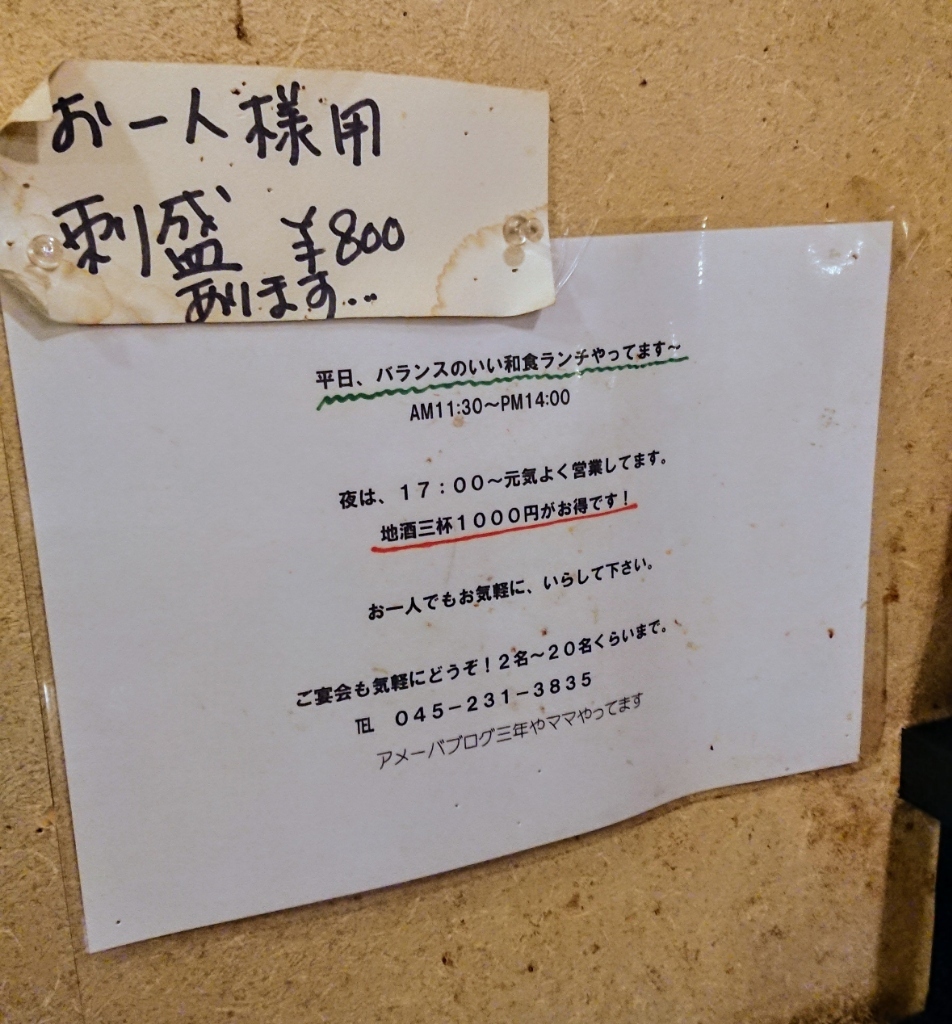 お一人様用
刺盛 ¥800
あります...
平日、バランスのいい和食ランチやってます〜
AM11:30〜PM14:00
夜は、17：00〜元気よく営業してます。
地酒三杯1000円がお得です！
お一人でもお気軽に、いらして下さい。
ご宴会も気軽にどうぞ！2名〜20名くらいまで。
℡ 045−231−3835
アメーバブログ三年やママやってます